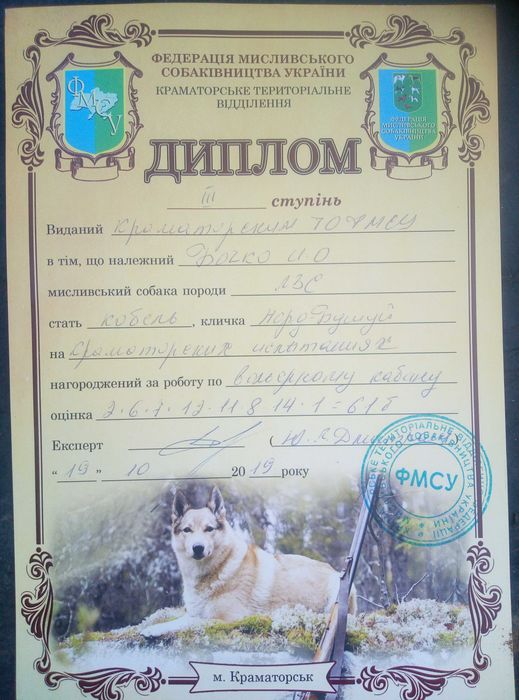 ФЕДЕРАЦІЯ МИСЛИВСЬКОГО
СОБАКІВНИЦТВА УКРАЇНИ
КРАМАТОРСЬКЕ ТЕРИТОРІАЛЬНЕ
ВІДДІЛЕННЯ
ФМСУ
ФЕДЕРАЦІЯ
МИСЛИВСЬКОГО
СОБАКІВНИЦТВА
УКРАЇНИ
ДИПЛОМ
III ступінь
Виданий Краматорским ТОФМСУ
в тім, що належний Бочко И.О
мисливський собака породи ЗЛ
стать кобель, кличка
на Краматорских испытаниях
нагороджений за роботу по вольерному кабану
оцінка 3·6·7·12·11·8·14·1=61б
Експерт
"19" 10 2019 року
ФМСУ
м. Краматорськ